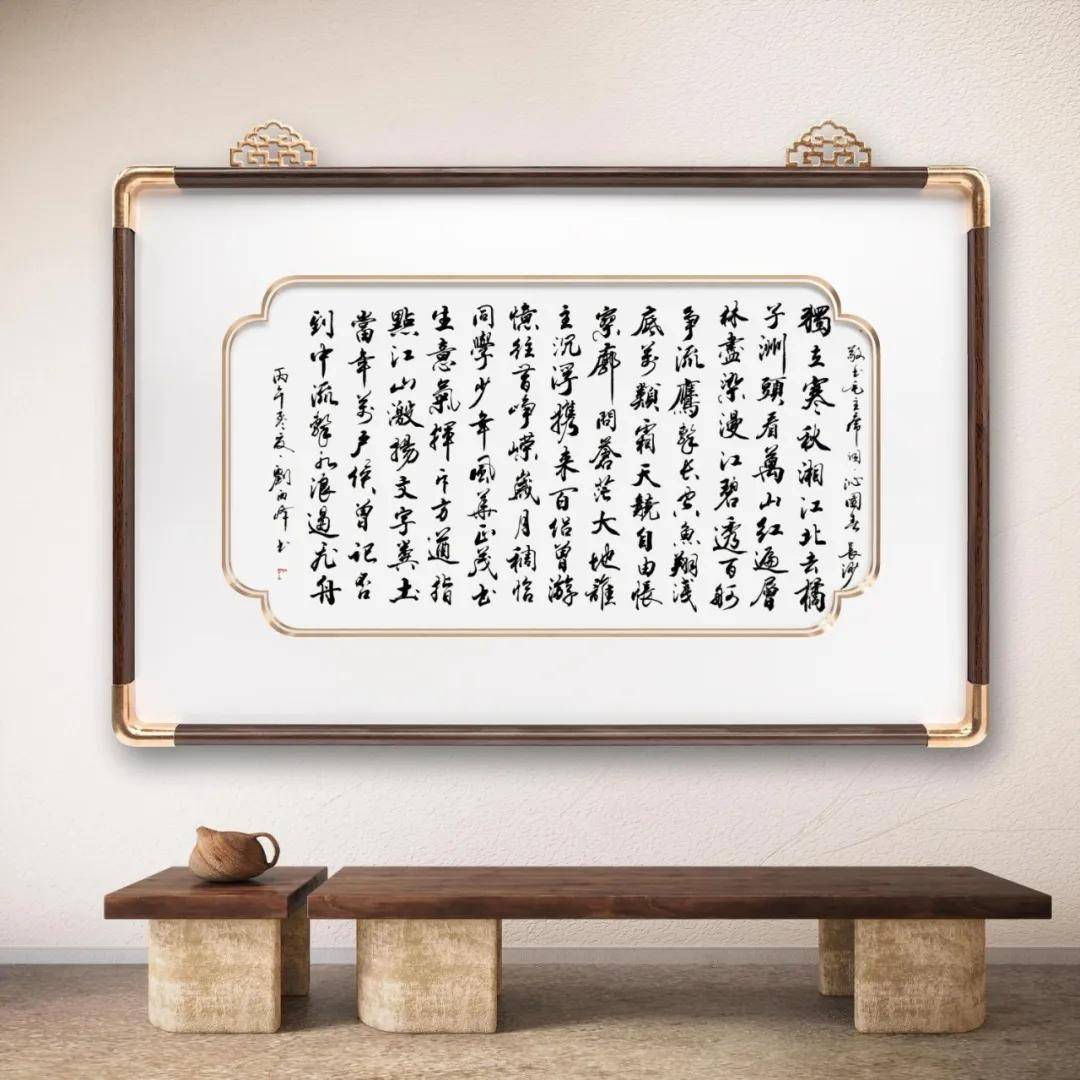 敬书毛主席词沁園春長沙
獨立寒秋湘江北去橘
子洲頭看萬山红遍層
林盡染漫江碧透百舸
争流鷹擊长空魚翔淺
底萬類霜天競自由悵
寥廓問蒼茫大地誰
主沉浮携来百侣曾游
憶往昔峥嵘歲月稠恰
同學少年風華正茂书
生意氣揮斥方遒指
點江山激揚文字糞土
當年萬户侯曾記否
到中流擊水浪遏飛舟
丙午 劉 峰书